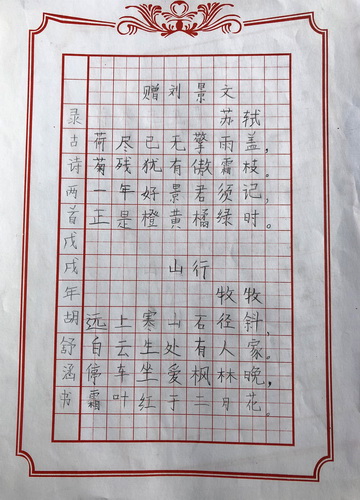 赠刘景文
苏轼
荷尽已无擎雨盖,
菊残犹有傲霜枝。
一年好景君须记,
正是橙黄橘绿时。
山行
牧牧
远上寒山石径斜,
白云生处有人家。
停车坐爱枫林晚,
霜叶红于二月花。
录古诗两首戊戌年胡舒涵书